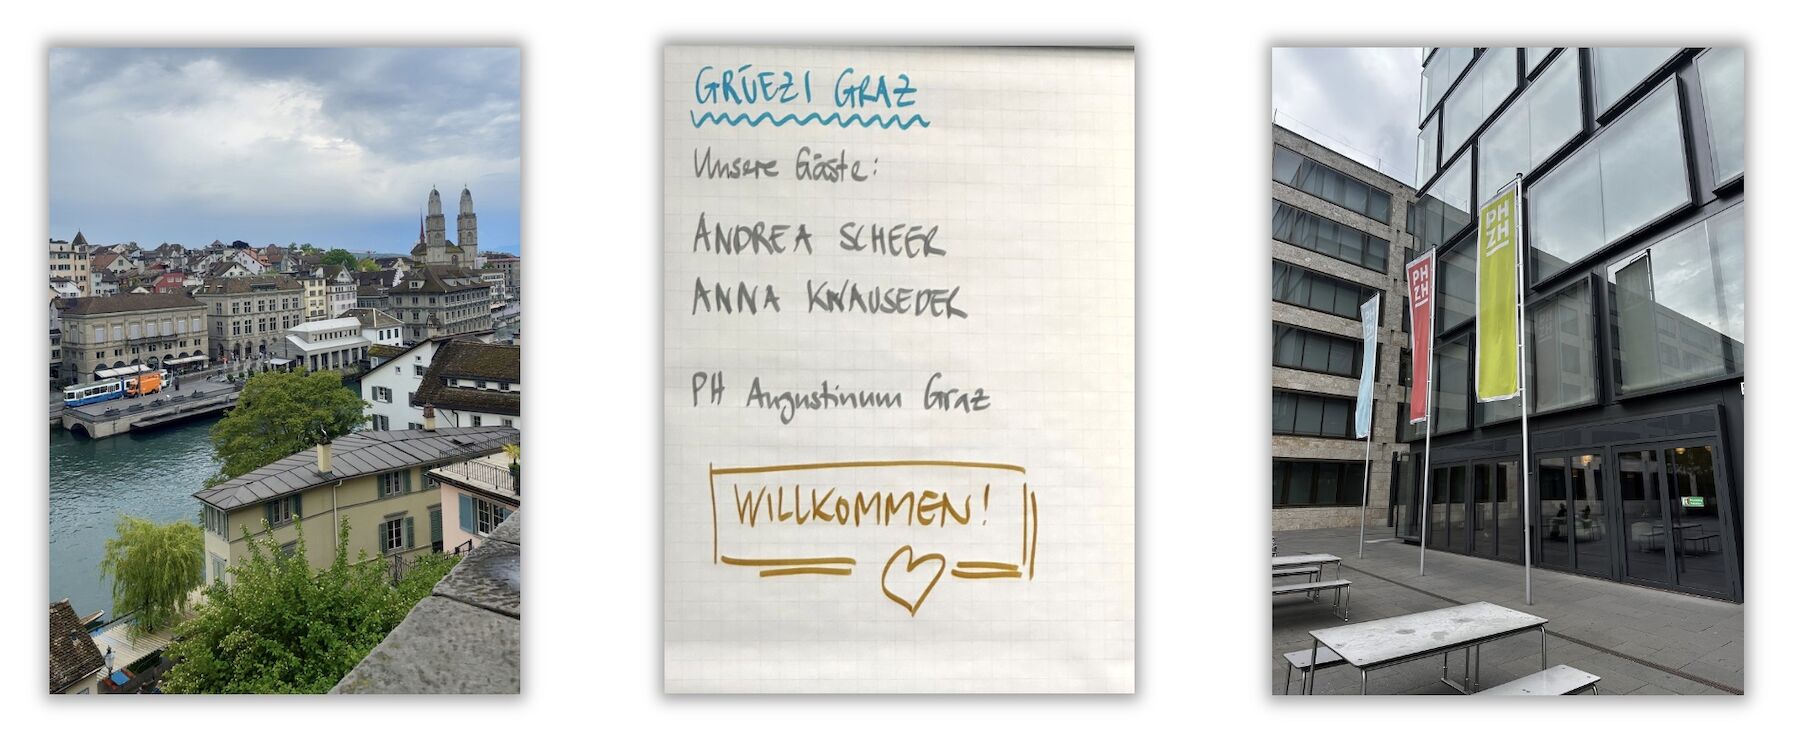 GRÜEZI GRAZ
Unsere Gäste:
ANDREA SCHEER
ANNA KNAUSEDER
PH Augustinum Graz
WILLKOMMEN!
PH
ZH
PH
ZH
PH
ZH